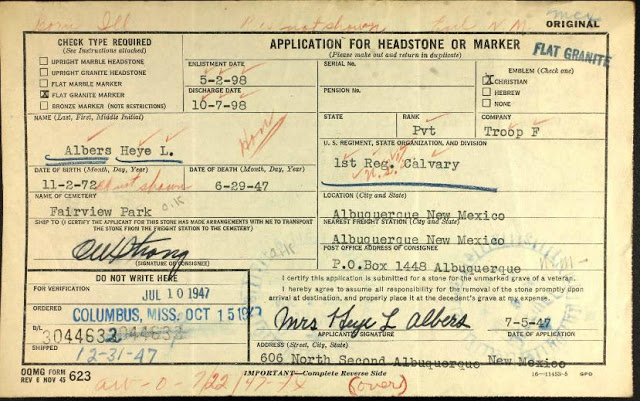 Born Ill not shown N.M.
ORIGINAL
CHECK TYPE REQUIRED
(See Instructions attached)
UPRIGHT MARBLE HEADSTONE
UPRIGHT GRANITE HEADSTONE
FLAT MARBLE MARKER
X FLAT GRANITE MARKER
BRONZE MARKER (NOTE RESTRICTIONS)
ENLISTMENT DATE
5-2-98
DISCHARGE DATE
10-7-98
APPLICATION FOR HEADSTONE OR MARKER
(Please make out and return in duplicate)
FLAT GRANITE
SERIAL No.
PENSION No.
EMBLEM (Check one)
X CHRISTIAN
HEBREW
NONE
NAME (Last, First, Middle Initial)
Albers Heye L.
Hon
STATE
RANK
Pvt
COMPANY
Troop F
U. S. REGIMENT, STATE ORGANIZATION, AND DIVISION
1st Reg. Calvary
DATE OF BIRTH (Month, Day, Year)
11-2-72 not shown
DATE OF DEATH (Month, Day, Year)
6-29-47
NAME OF CEMETERY
Fairview Park O.K
LOCATION (City and State)
Albuquerque New Mexico
SHIP TO (I CERTIFY THE APPLICANT FOR THIS STONE HAS MADE ARRANGEMENTS WITH ME TO TRANSPORT
THE STONE FROM THE FREIGHT STATION TO THE CEMETERY)
Strong
(SIGNATURE OR CONSIGNEE)
NEAREST FREIGHT STATION (City and State)
Albuquerque New Mexico
POST OFFICE ADDRESS OF CONSIGNEE
P.O.Box 1448 Albuquerque
DO NOT WRITE HERE
FOR VERIFICATION
JUL 10 1947
ORDERED
COLUMBUS, MISS. OCT 15
B/L
3044632
SHIPPED
12-31-47
I certify this application is submitted for a stone for the unmarked grave of a veteran.
I hereby agree to assume all responsibility for the removal of the stone promptly upon
arrival at destination, and properly place it at the decedent's grave at my expense.
Mrs Heye L Albers
7-5-47
APPLICANT'S SIGNATURE
DATE
ADDRESS (Street, City, State)
606 North Second Albuquerque New Mexico
OQMG FORM
REV 6 NOV 45 623
IMPORTANT—Complete Reverse Side
(over)
GPO